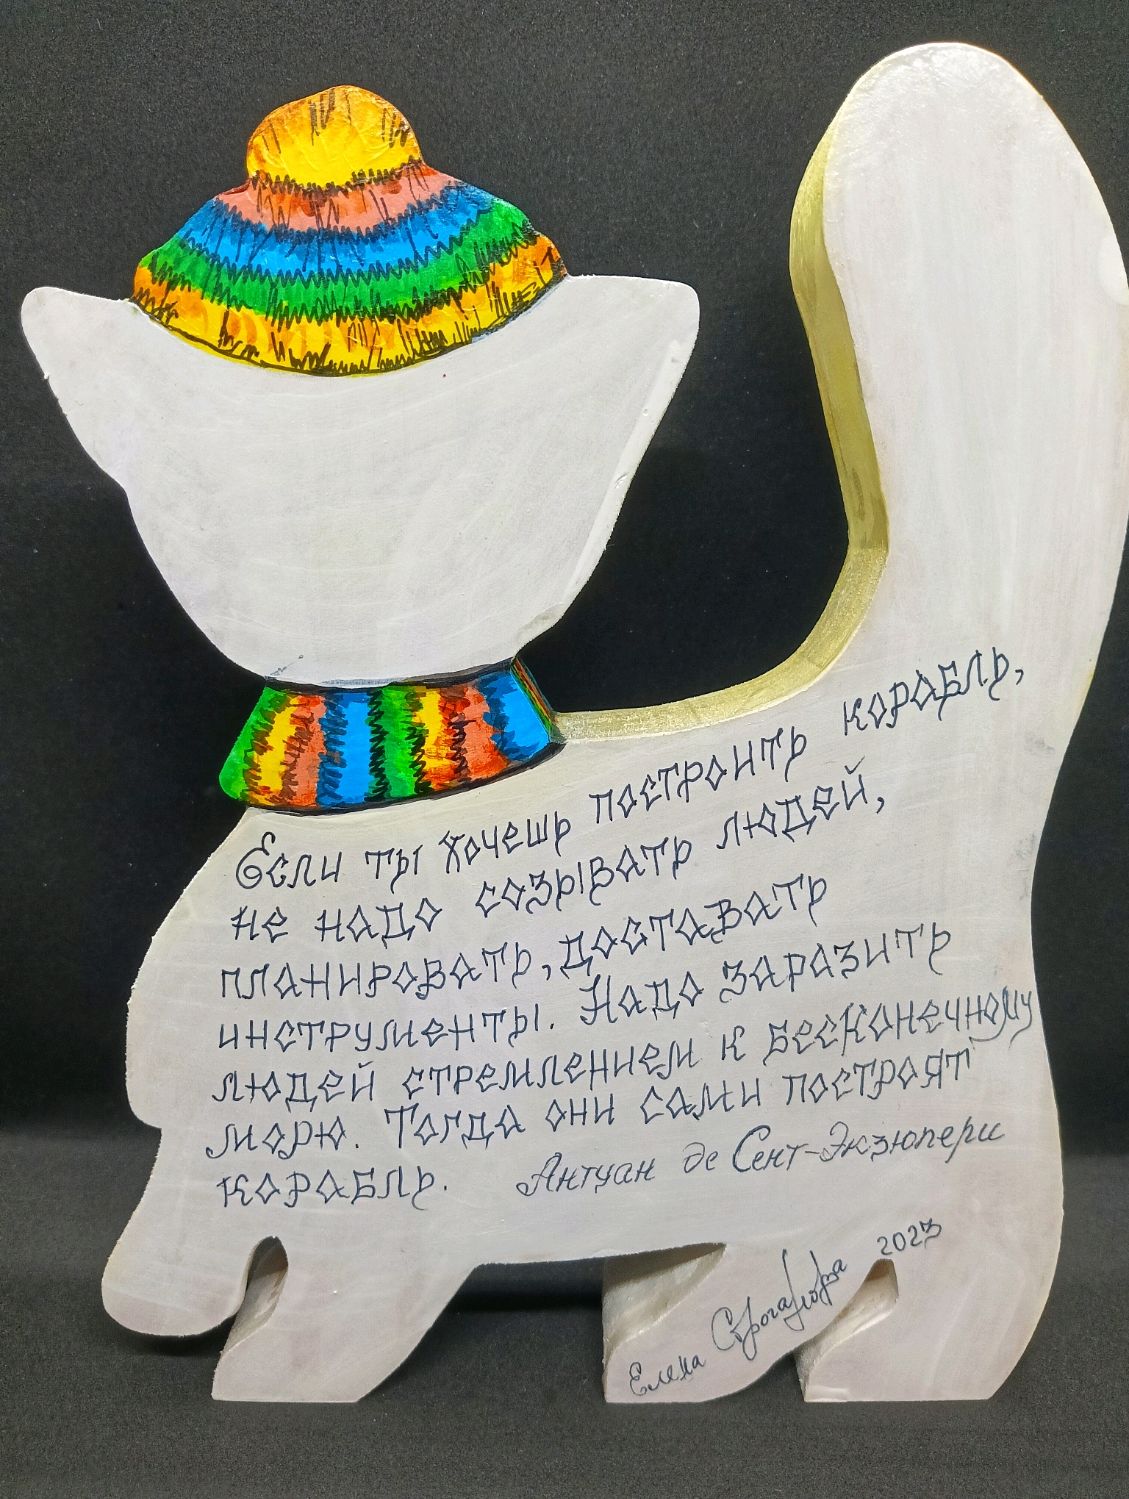 Если ты хочешь построить корабль,
не надо созывать людей,
планировать, доставать
инструменты. Надо заразить
людей стремлением к бесконечному
морю. Тогда они сами построят
корабль. Антуан де Сент-Экзюпери
Елена 2023